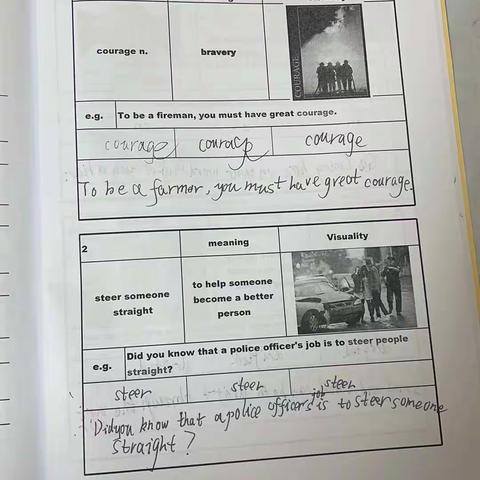 courage n.
bravery
COURAGE
e.g. To be a fireman, you must have great courage.
courage courage courage
To be a farmer, you must have great courage.
2 meaning Visuality
steer someone straight
to help someone become a better person
e.g. Did you know that a police officer's job is to steer people straight?
steer steer steer
Did you know that a police officers job is to steer someone
straight?